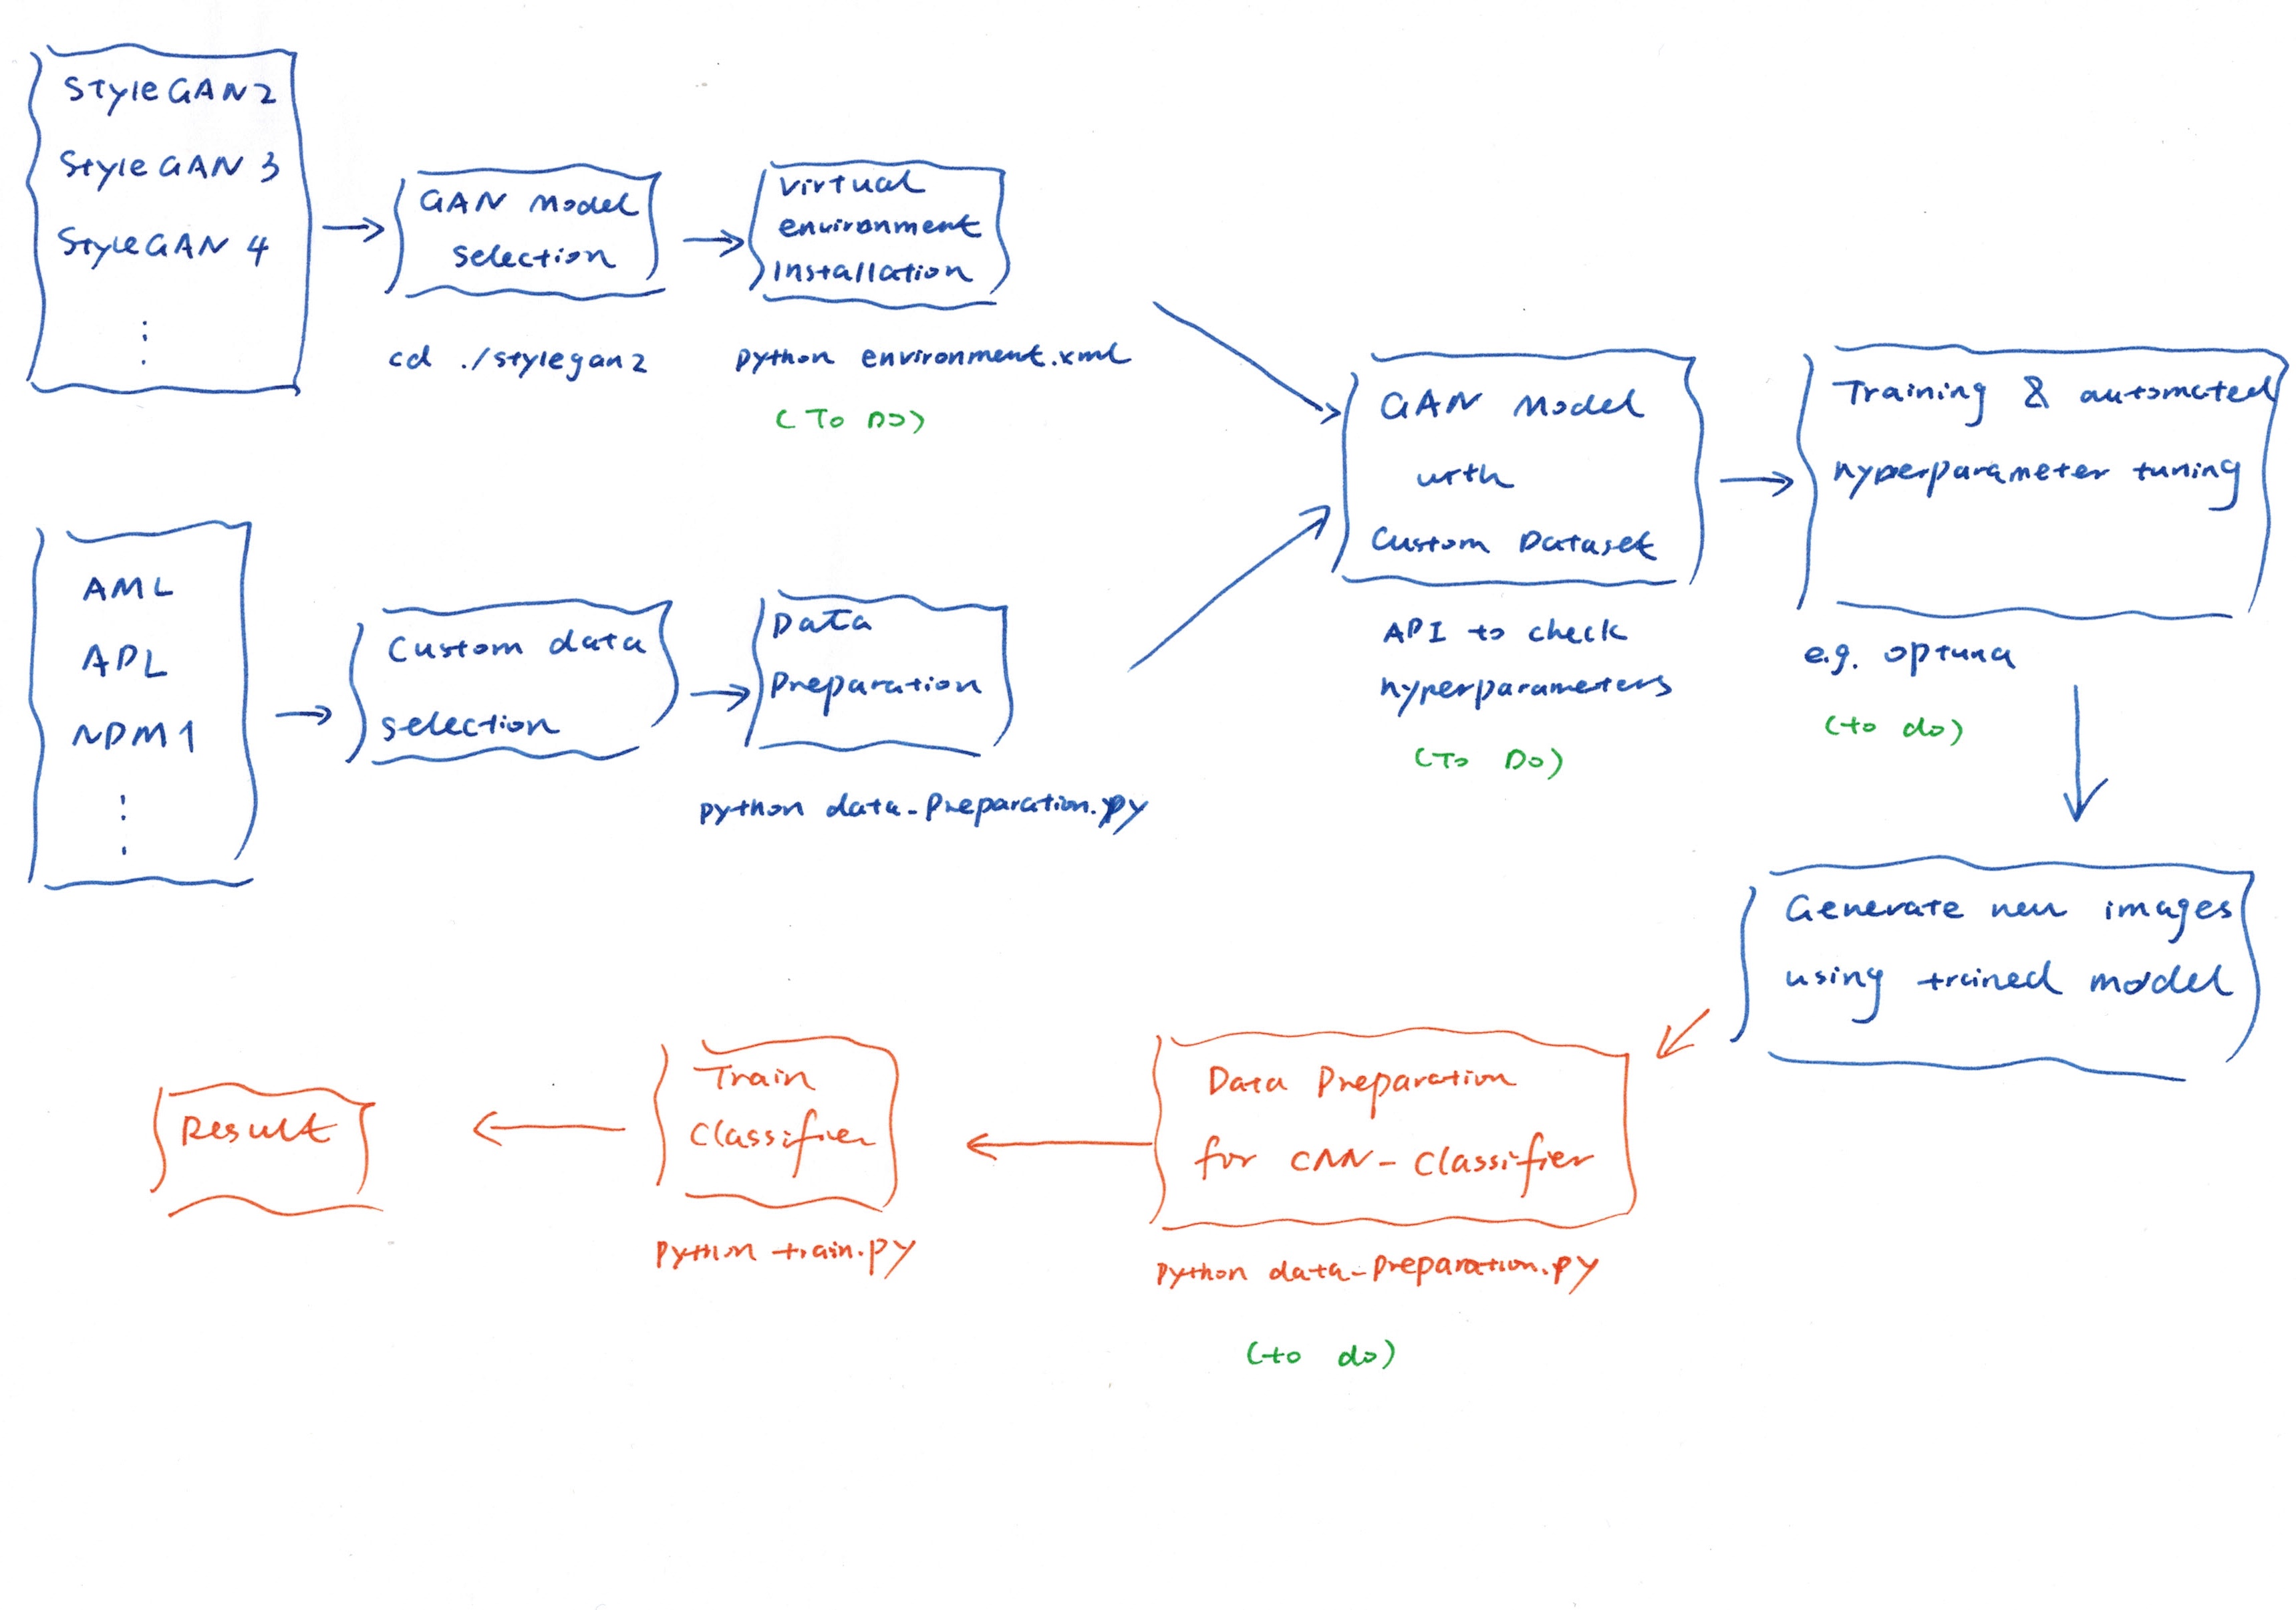 StyleGAN2
StyleGAN 3
StyleGAN 4
⋮
GAN Model
selection
cd ./stylegan2
Virtual
environment
installation
python environment.xml
(To Do)
AML
APL
NPM1
⋮
Custom data
selection
Data
Preparation
python data_preparation.py
GAN Model
with
Custom Dataset
API to check
hyperparameters
(To Do)
Training & automated
hyperparameter tuning
e.g. optuna
(to do)
Generate new images
using trained model
Data Preparation
for CNN-Classifier
python data_preparation.py
(to do)
Train
Classifier
python train.py
Result